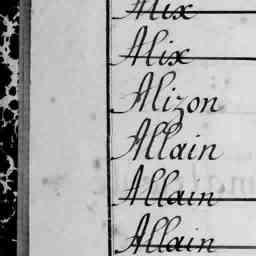 Alix
Alix
Alizon
Allain
Allain
Allain